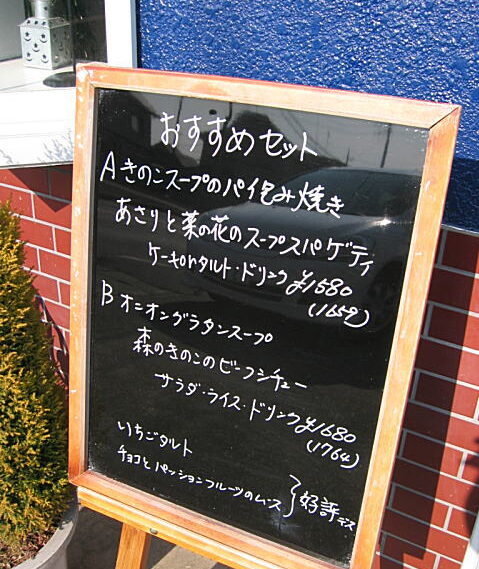 おすすめセット
A きのこスープのパイ包み焼き
あさりと菜の花のスープスパゲティ
ケーキorタルト・ドリンク ¥1580
(1659)
B オニオングラタンスープ
森のきのこのビーフシチュー
サラダ・ライス・ドリンク ¥1680
(1764)
いちごタルト
チョコとパッションフルーツのムース } 好評デス